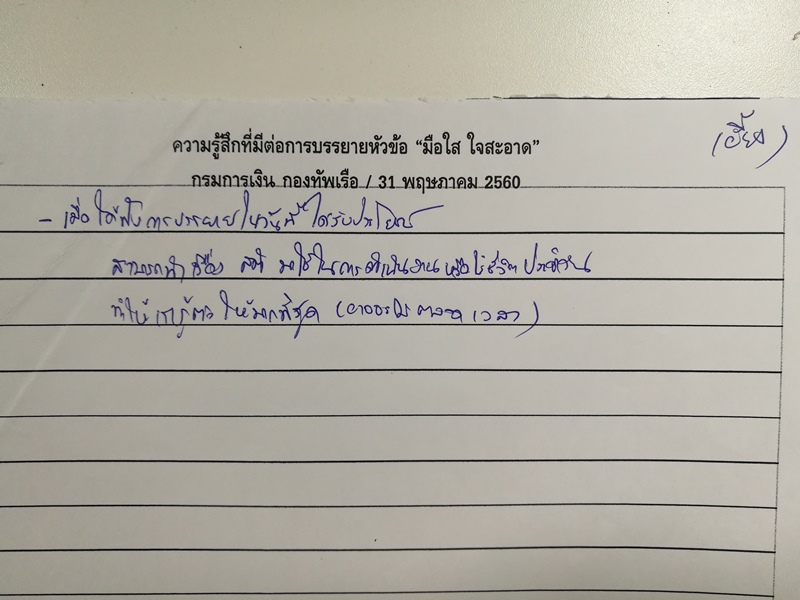 ความรู้สึกที่มีต่อการบรรยายหัวข้อ “มือใส ใจสะอาด”
กรมการเงิน กองทัพเรือ / 31 พฤษภาคม 2560
- เมื่อได้ฟังการบรรยายในวันนี้ ได้รับประโยชน์
สามารถนำเรื่อง สติ มาใช้ในการดำเนินงาน หรือใช้ชีวิตประจำวัน
ทำให้เรารู้ตัวให้มากที่สุด ( ตลอดเวลา )